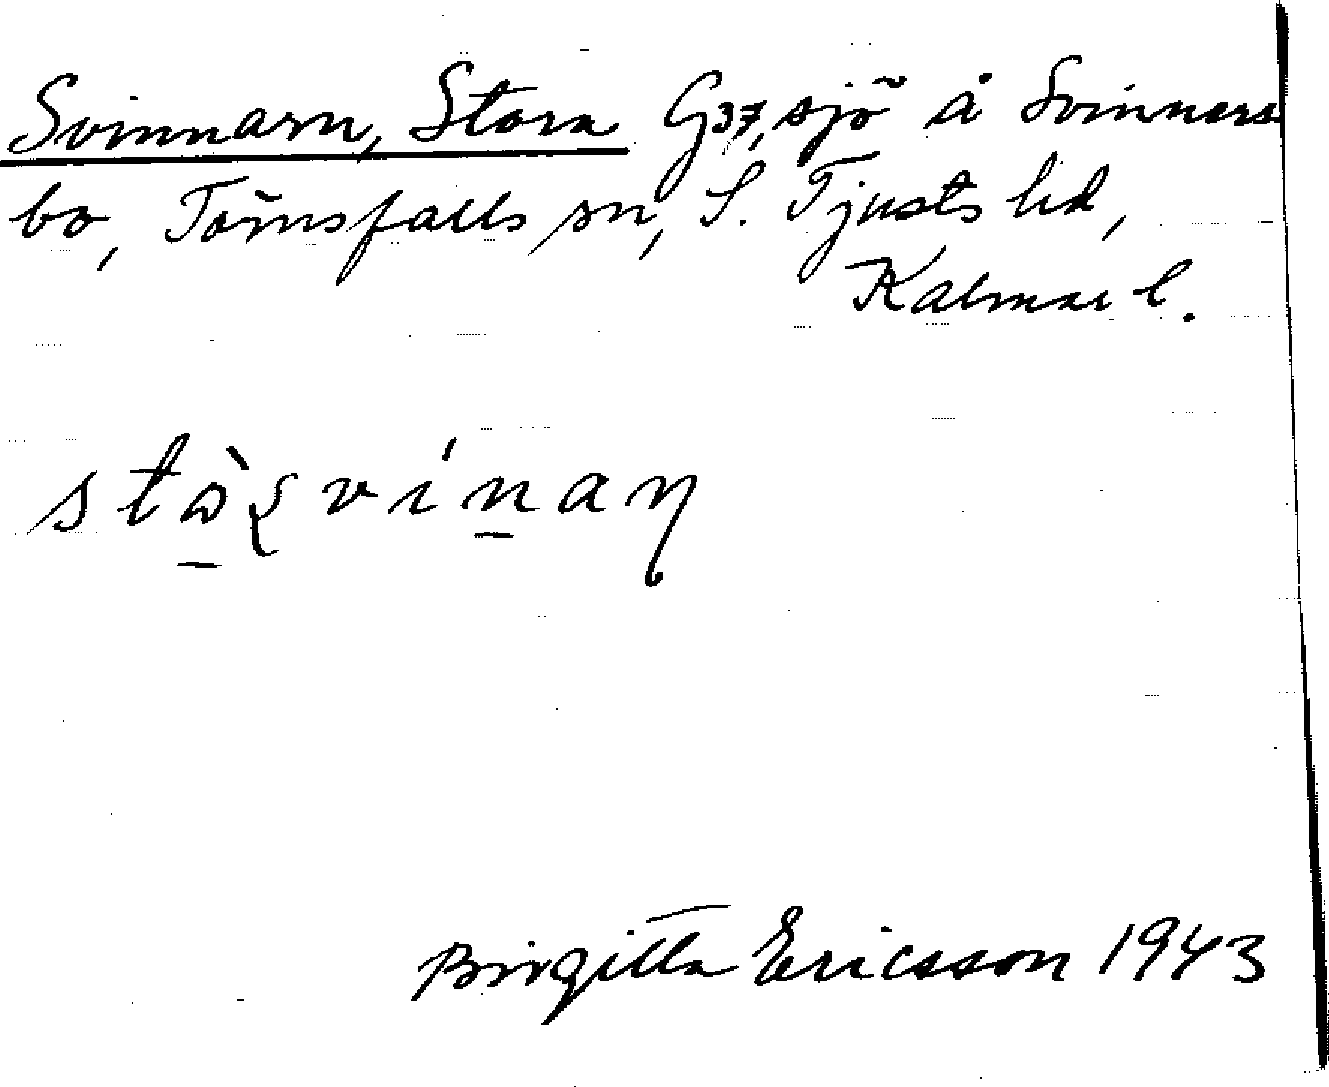 Svinnarn, Stora G37, sjö å Svinners
bo, Törnsfalls sn, S. Tjusts hd,
Kalmar l.
stɷ̀ꝛvínaŋ
Birgitta Ericsson 1943